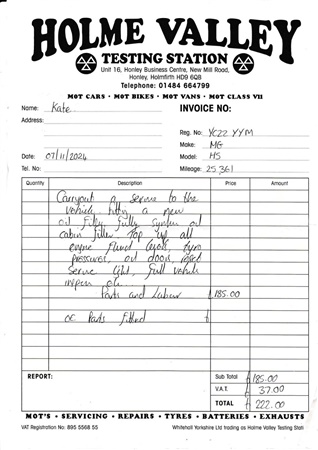 HOLME VALLEY
TESTING STATION
Unit 16, Honley Business Centre, New Mill Road,
Honley, Holmfirth HD9 6QB
Telephone: 01484 664799
MOT CARS • MOT BIKES • MOT VANS • MOT CLASS VII
Name: Kate
INVOICE NO:
Address:
Reg. No: YC22 YYM
Make: MG
Date: 07/11/2024
Model: HS
Tel. No:
Mileage: 25361
Quantity Description Price Amount
Carryout a service to the
vehicle, fitting a new
oil filter, fully synthetic oil
cabin filter Top up all
engine fluid levels, tyre
pressures, oil door, reset
Service light, full vehicle
Parts and Labour £185.00
OE Parts fitted
REPORT:
Sub Total £185.00
V.A.T. 37.00
TOTAL £222.00
MOT'S • SERVICING • REPAIRS • TYRES • BATTERIES • EXHAUSTS
VAT Registration No: 895 5568 55
Whitehall Yorkshire Ltd trading as Holme Valley Testing Stati